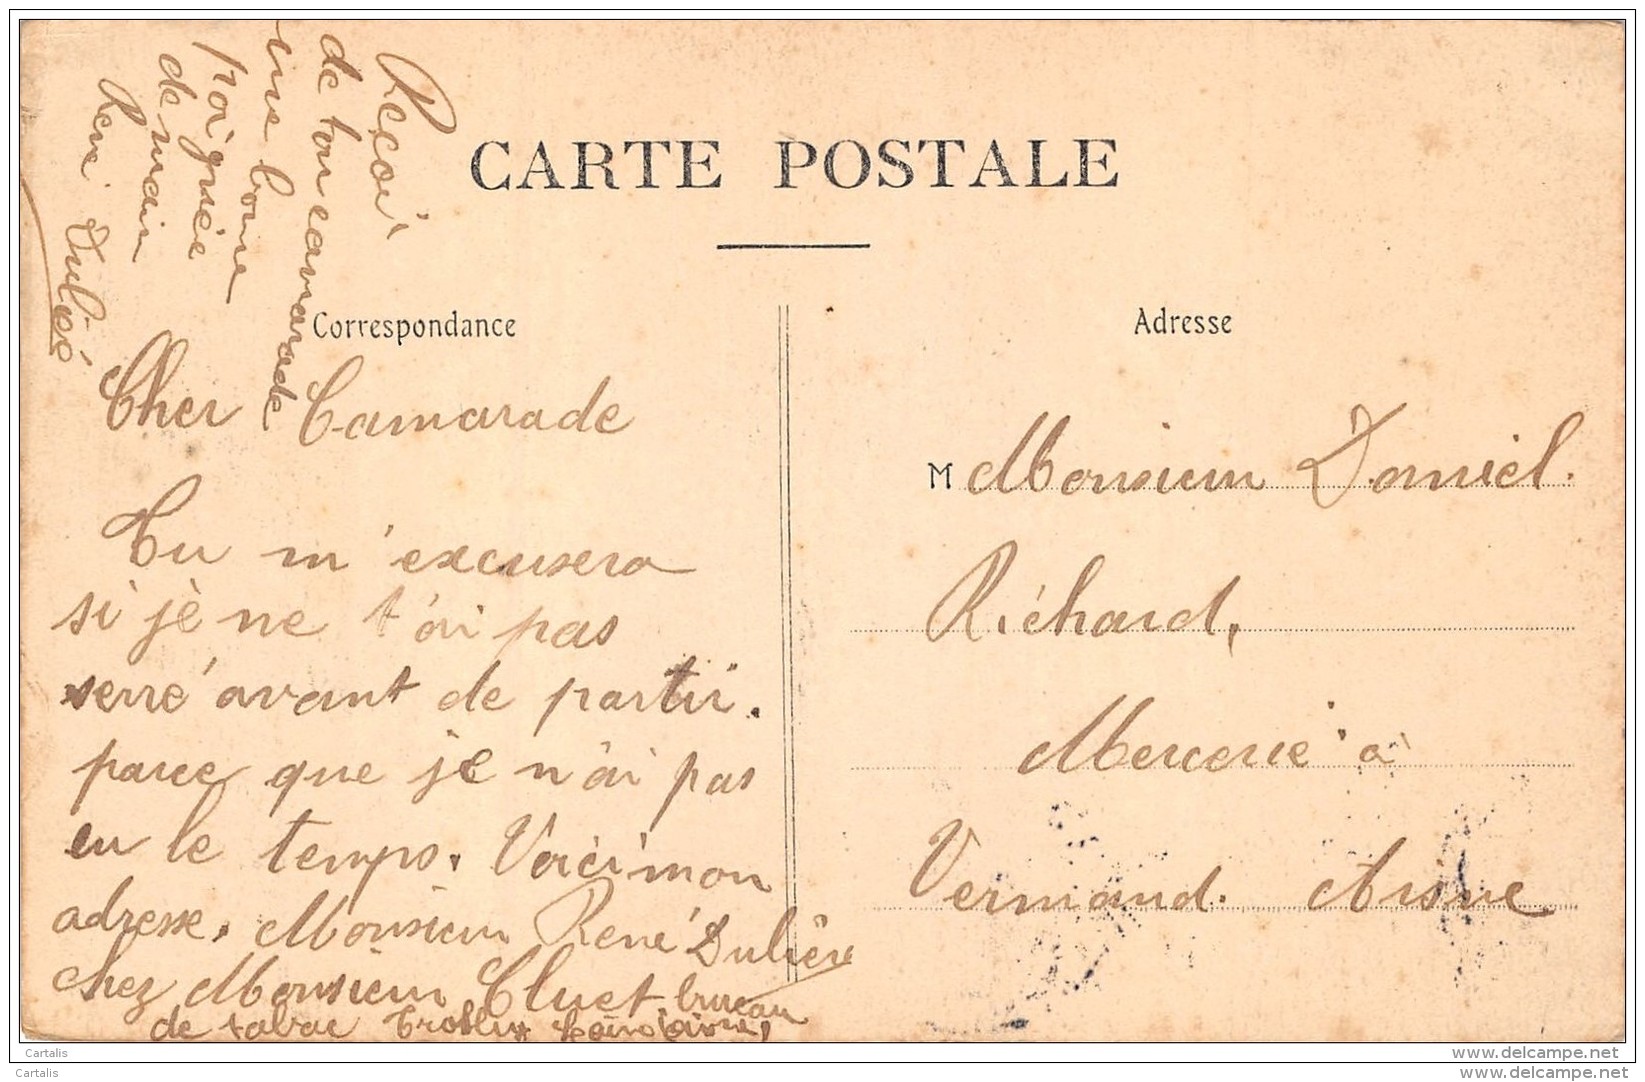 CARTE POSTALE
Correspondance
Adresse
Cher Camarade
Tu m'excusera
si je ne t'ai pas
serré avant de partir.
parce que je n'ai pas
eu le temps. Voici mon
adresse. Monsieur René Dulière
chez Monsieur Cluet. bureau
de tabac
Reçoi
de ton camarade
une bonne
poignée
de main
René
M Monsieur Daniel.
Richard,
Mercerie à
Vermand. Aisne
Cartalis
www.delcampe.net
Cartalis
www.delcampe.net